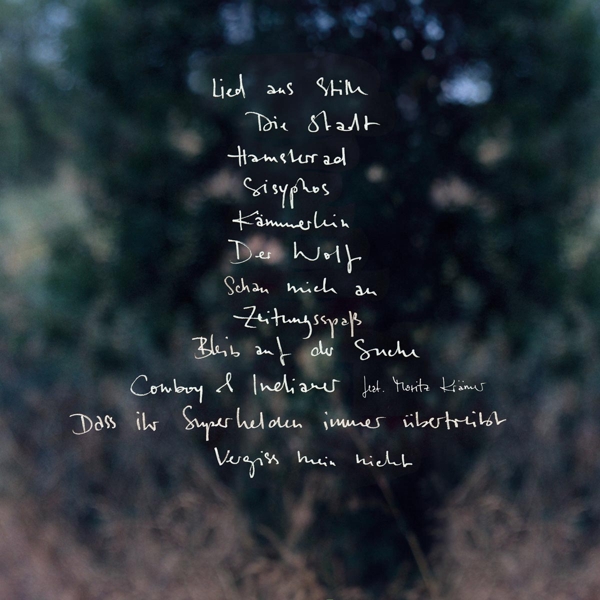 Lied aus Stille
Die Stadt
Hamsterrad
Sisyphos
Kämmerlein
Der Wolf
Schau mich an
Zeitungsspaß
Bleib auf der Suche
Cowboy & Indianer feat. Moritz Krämer
Dass ihr Superhelden immer übertreibt
Vergiss mein nicht